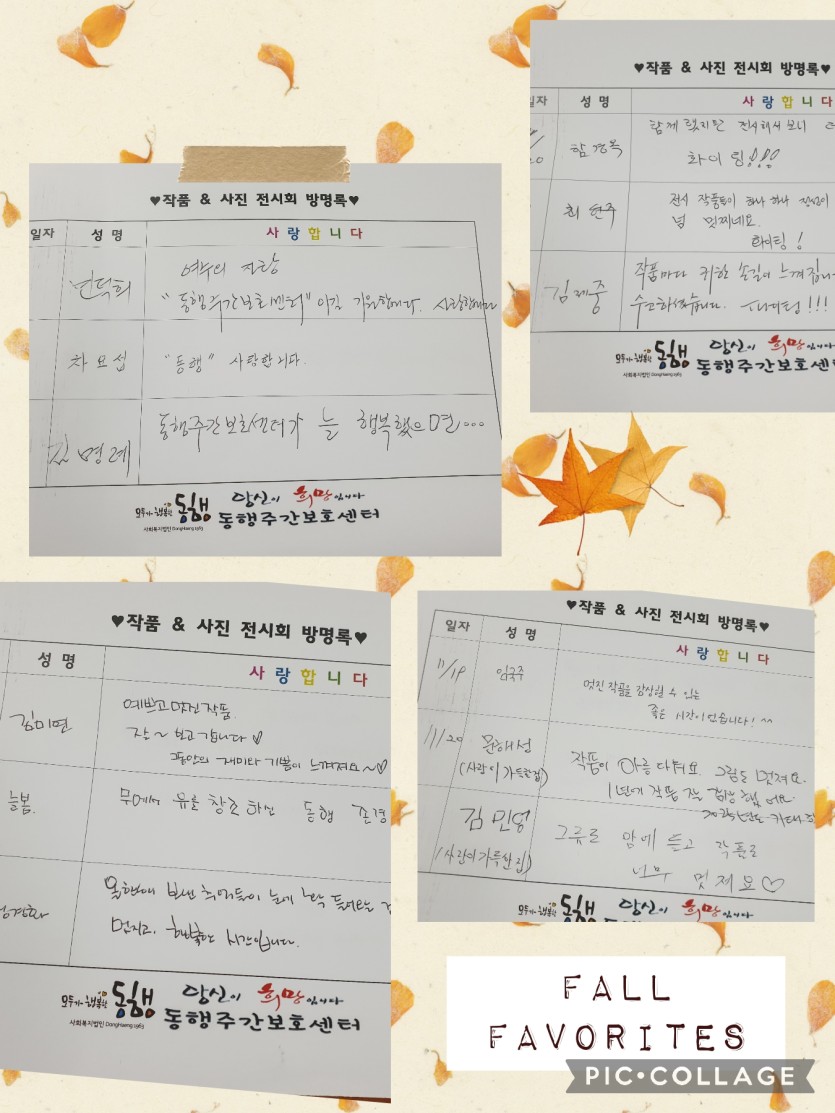 ♥작품 & 사진 전시회 방명록♥
일자 성명 사랑합니다
여수의 자랑
민덕희 "동행주간보호센터"이길 기원합니다. 사랑합니다
차요섭 "동행" 사랑합니다.
김명례 동행주간보호센터가 늘 행복했으면...
모두가 행복한 동행 당신이 희망입니다
사회복지법인 DongHaeng 1963 동행주간보호센터
♥작품 & 사진 전시회 방명록♥
일자 성명 사랑합니다
20 함경옥 함께 했지만 전시해서 보니
화이팅!!!
최현주 전시 작품들이 하나 하나 정성이
넘 멋찌네요.
화이팅!
김제중 작품마다 귀한 손길이 느껴집니
수고하셨습니다. 화이팅!!!
모두가 행복한 동행 당신이 희망입니다
사회복지법인 DongHaeng 1963 동행주간보호센
♥작품 & 사진 전시회 방명록♥
성명 사랑합니다
예쁘고 멋진 작품.
김미연 잘~ 보고 갑니다♡
그동안의 재미와 기쁨이 느껴져요~♡
늘봄. 무에서 유를 창조하신 동행 존경
올한해 보낸 추억들이 눈에
멋지고, 행복한 시간입니다.
모두가 행복한 동행 당신이 희망입니다
사회복지법인 DongHaeng 1963 동행주간보호센터
♥작품 & 사진 전시회 방명록♥
일자 성명 사랑합니다
11/19 임국주 멋진 작품을 감상할 수 있는
좋은 시간이었습니다! ^^
11/20 문해성 작품이 아름다워요. 그림도 멋져요.
(사랑이가득한집) 1년에 작품 잘 감상 했어요.
김민영
(사랑이가득한집) 그류로 맘에 듣고 작품로
너무 멋져요♡
모두가 행복한 동행 당신이 희망입니다
FALL
FAVORITES
PIC•COLLAGE